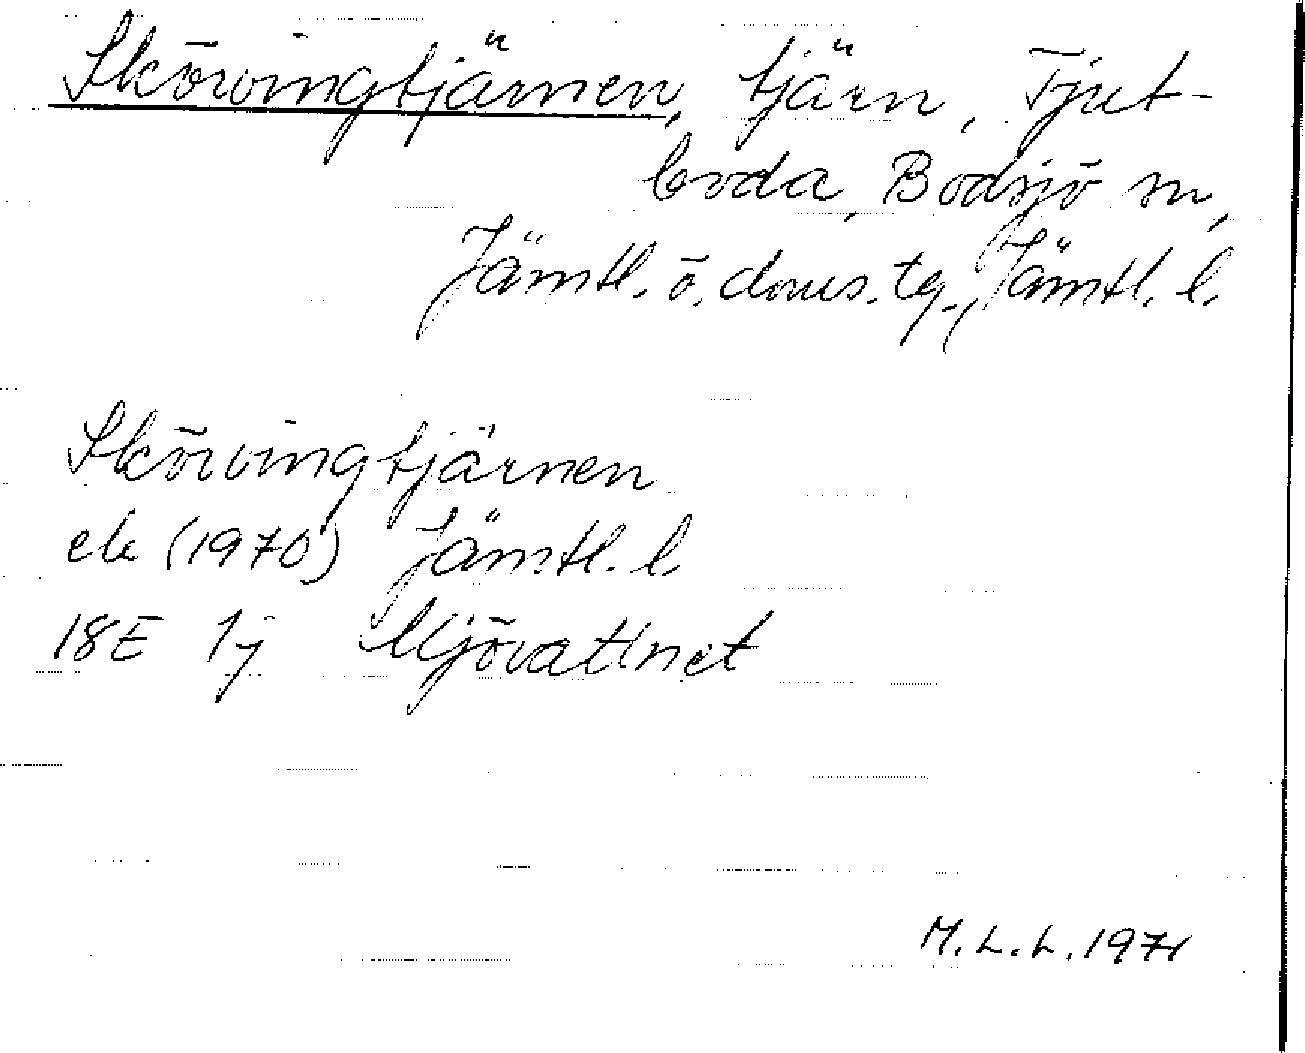 Skörvingtjärnen, tjärn, Fjut-
boda, Bodsjö sn,
Jämtl. ö. doms. tg., Jämtl. l.
Skörvingtjärnen
ek (1970) Jämtl. l.
18E 1j Mjövattnet
M.L.L. 1971